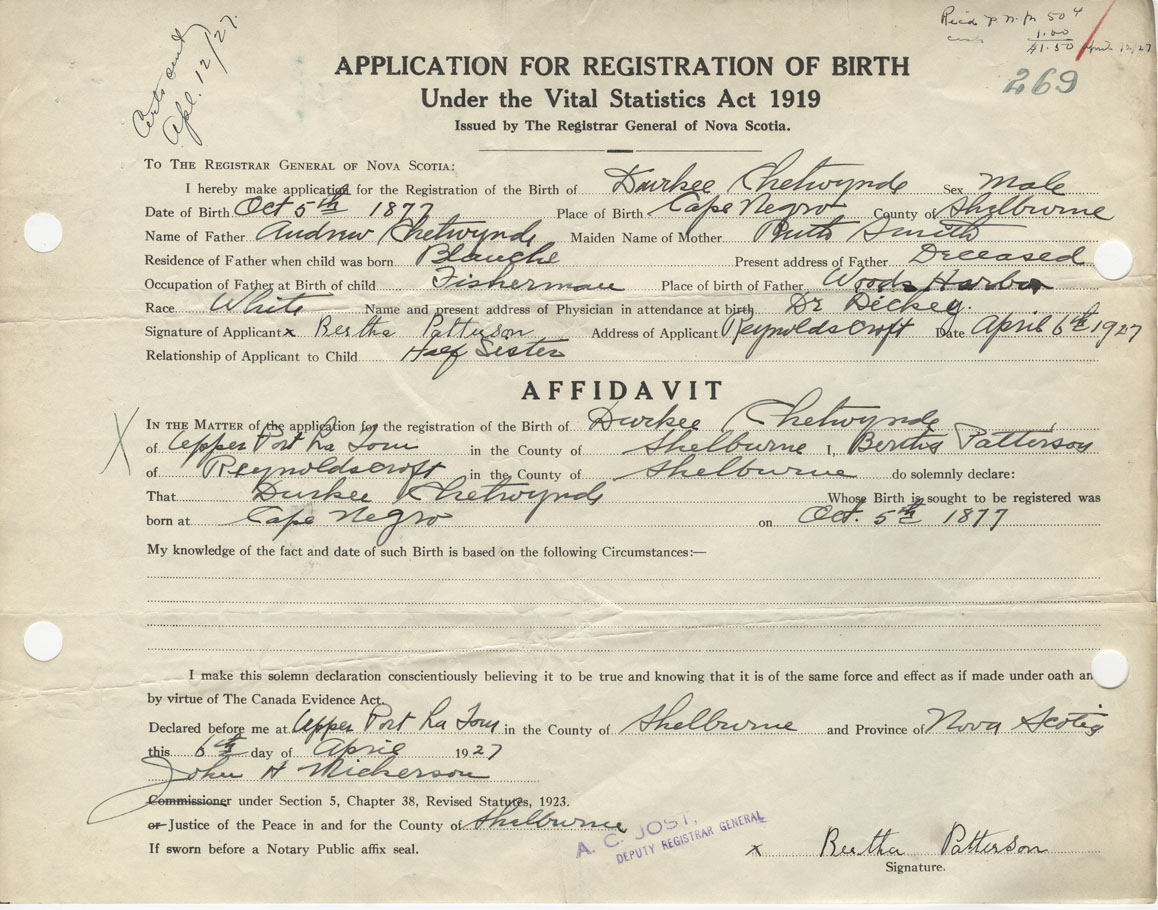 Certs out
Apl. 12/27.
50¢
1.00
$1.50 April 12/27
269
APPLICATION FOR REGISTRATION OF BIRTH
Under the Vital Statistics Act 1919
Issued by The Registrar General of Nova Scotia.
TO THE REGISTRAR GENERAL OF NOVA SCOTIA:
I hereby make application for the Registration of the Birth of Durkee Chetwynde Sex Male
Date of Birth Oct 5th 1877 Place of Birth Cape Negro County of Shelburne
Name of Father Andrew Chetwynde Maiden Name of Mother Ruth Smith
Residence of Father when child was born Blanche Present address of Father Deceased
Occupation of Father at Birth of child Fisherman Place of birth of Father Woods Harbor
Race White Name and present address of Physician in attendance at birth Dr Dickey.
Signature of Applicant x Bertha Patterson Address of Applicant Reynoldscroft Date April 6th 1927
Relationship of Applicant to Child Half Sister
AFFIDAVIT
IN THE MATTER of the application for the registration of the Birth of Durkee Chetwynde
X of Upper Port La Tour in the County of Shelburne I, Bertha Patterson
of Reynoldscroft in the County of Shelburne do solemnly declare:
That Durkee Chetwynde Whose Birth is sought to be registered was
born at Cape Negro on Oct. 5th 1877
My knowledge of the fact and date of such Birth is based on the following Circumstances:—
I make this solemn declaration conscientiously believing it to be true and knowing that it is of the same force and effect as if made under oath an
by virtue of The Canada Evidence Act.
Declared before me at Upper Port La Tour in the County of Shelburne and Province of Nova Scotia
this 6th day of April 1927
John H Nickerson
Commissioner under Section 5, Chapter 38, Revised Statutes, 1923.
or Justice of the Peace in and for the County of Shelburne
If sworn before a Notary Public affix seal.
A. C. JOST,
DEPUTY REGISTRAR GENERAL
x Bertha Patterson
Signature.